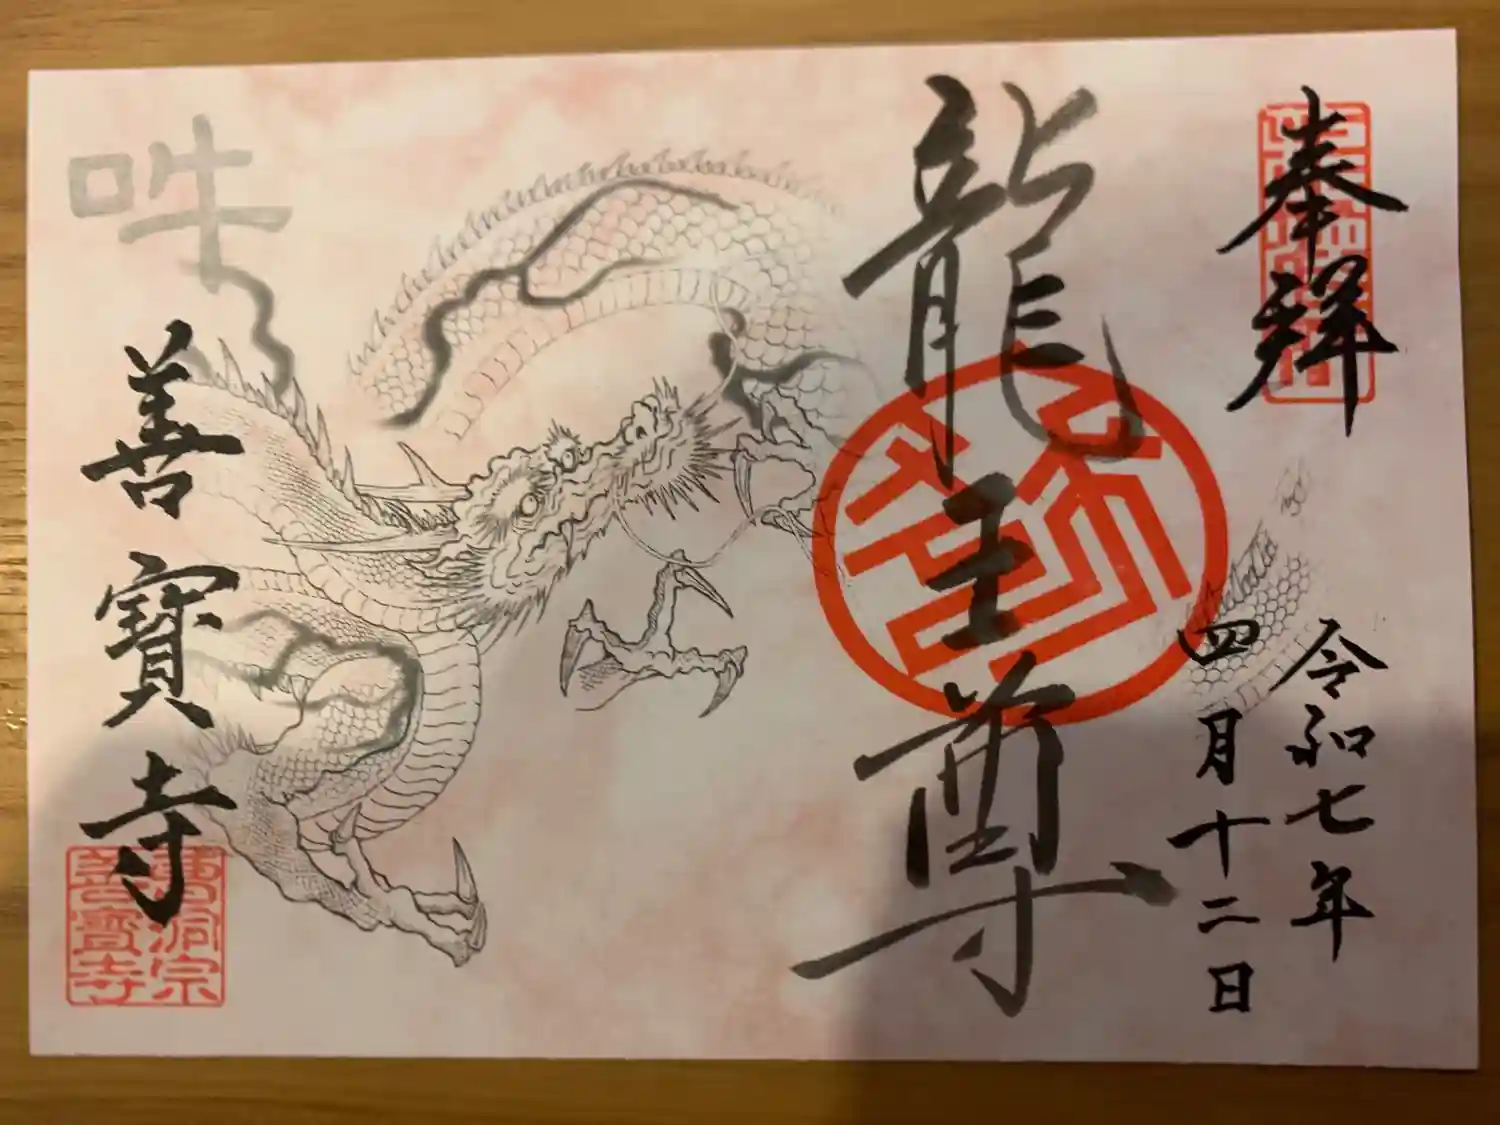 奉拜
令和七年
四月十二日
龍王尊
吽
善寶寺
曹洞宗
善寶寺